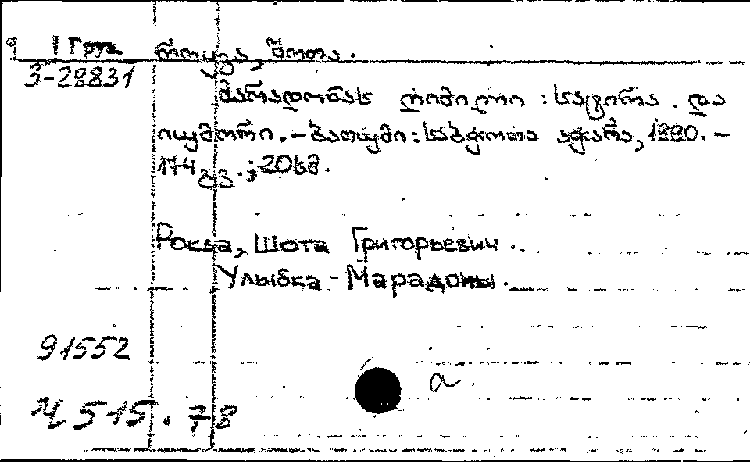 1 Груз როყვა, შოთა.
3-28831
მარადონას ღიმილი : სატირა და
იუმორი. – ბათუმი : საბჭოთა აჭარა, 1990. –
174 გვ. ; 20 სმ.
Роква, Шота Григорьевич.
Улыбка Марадоны.
91552
Ч 515.78
a